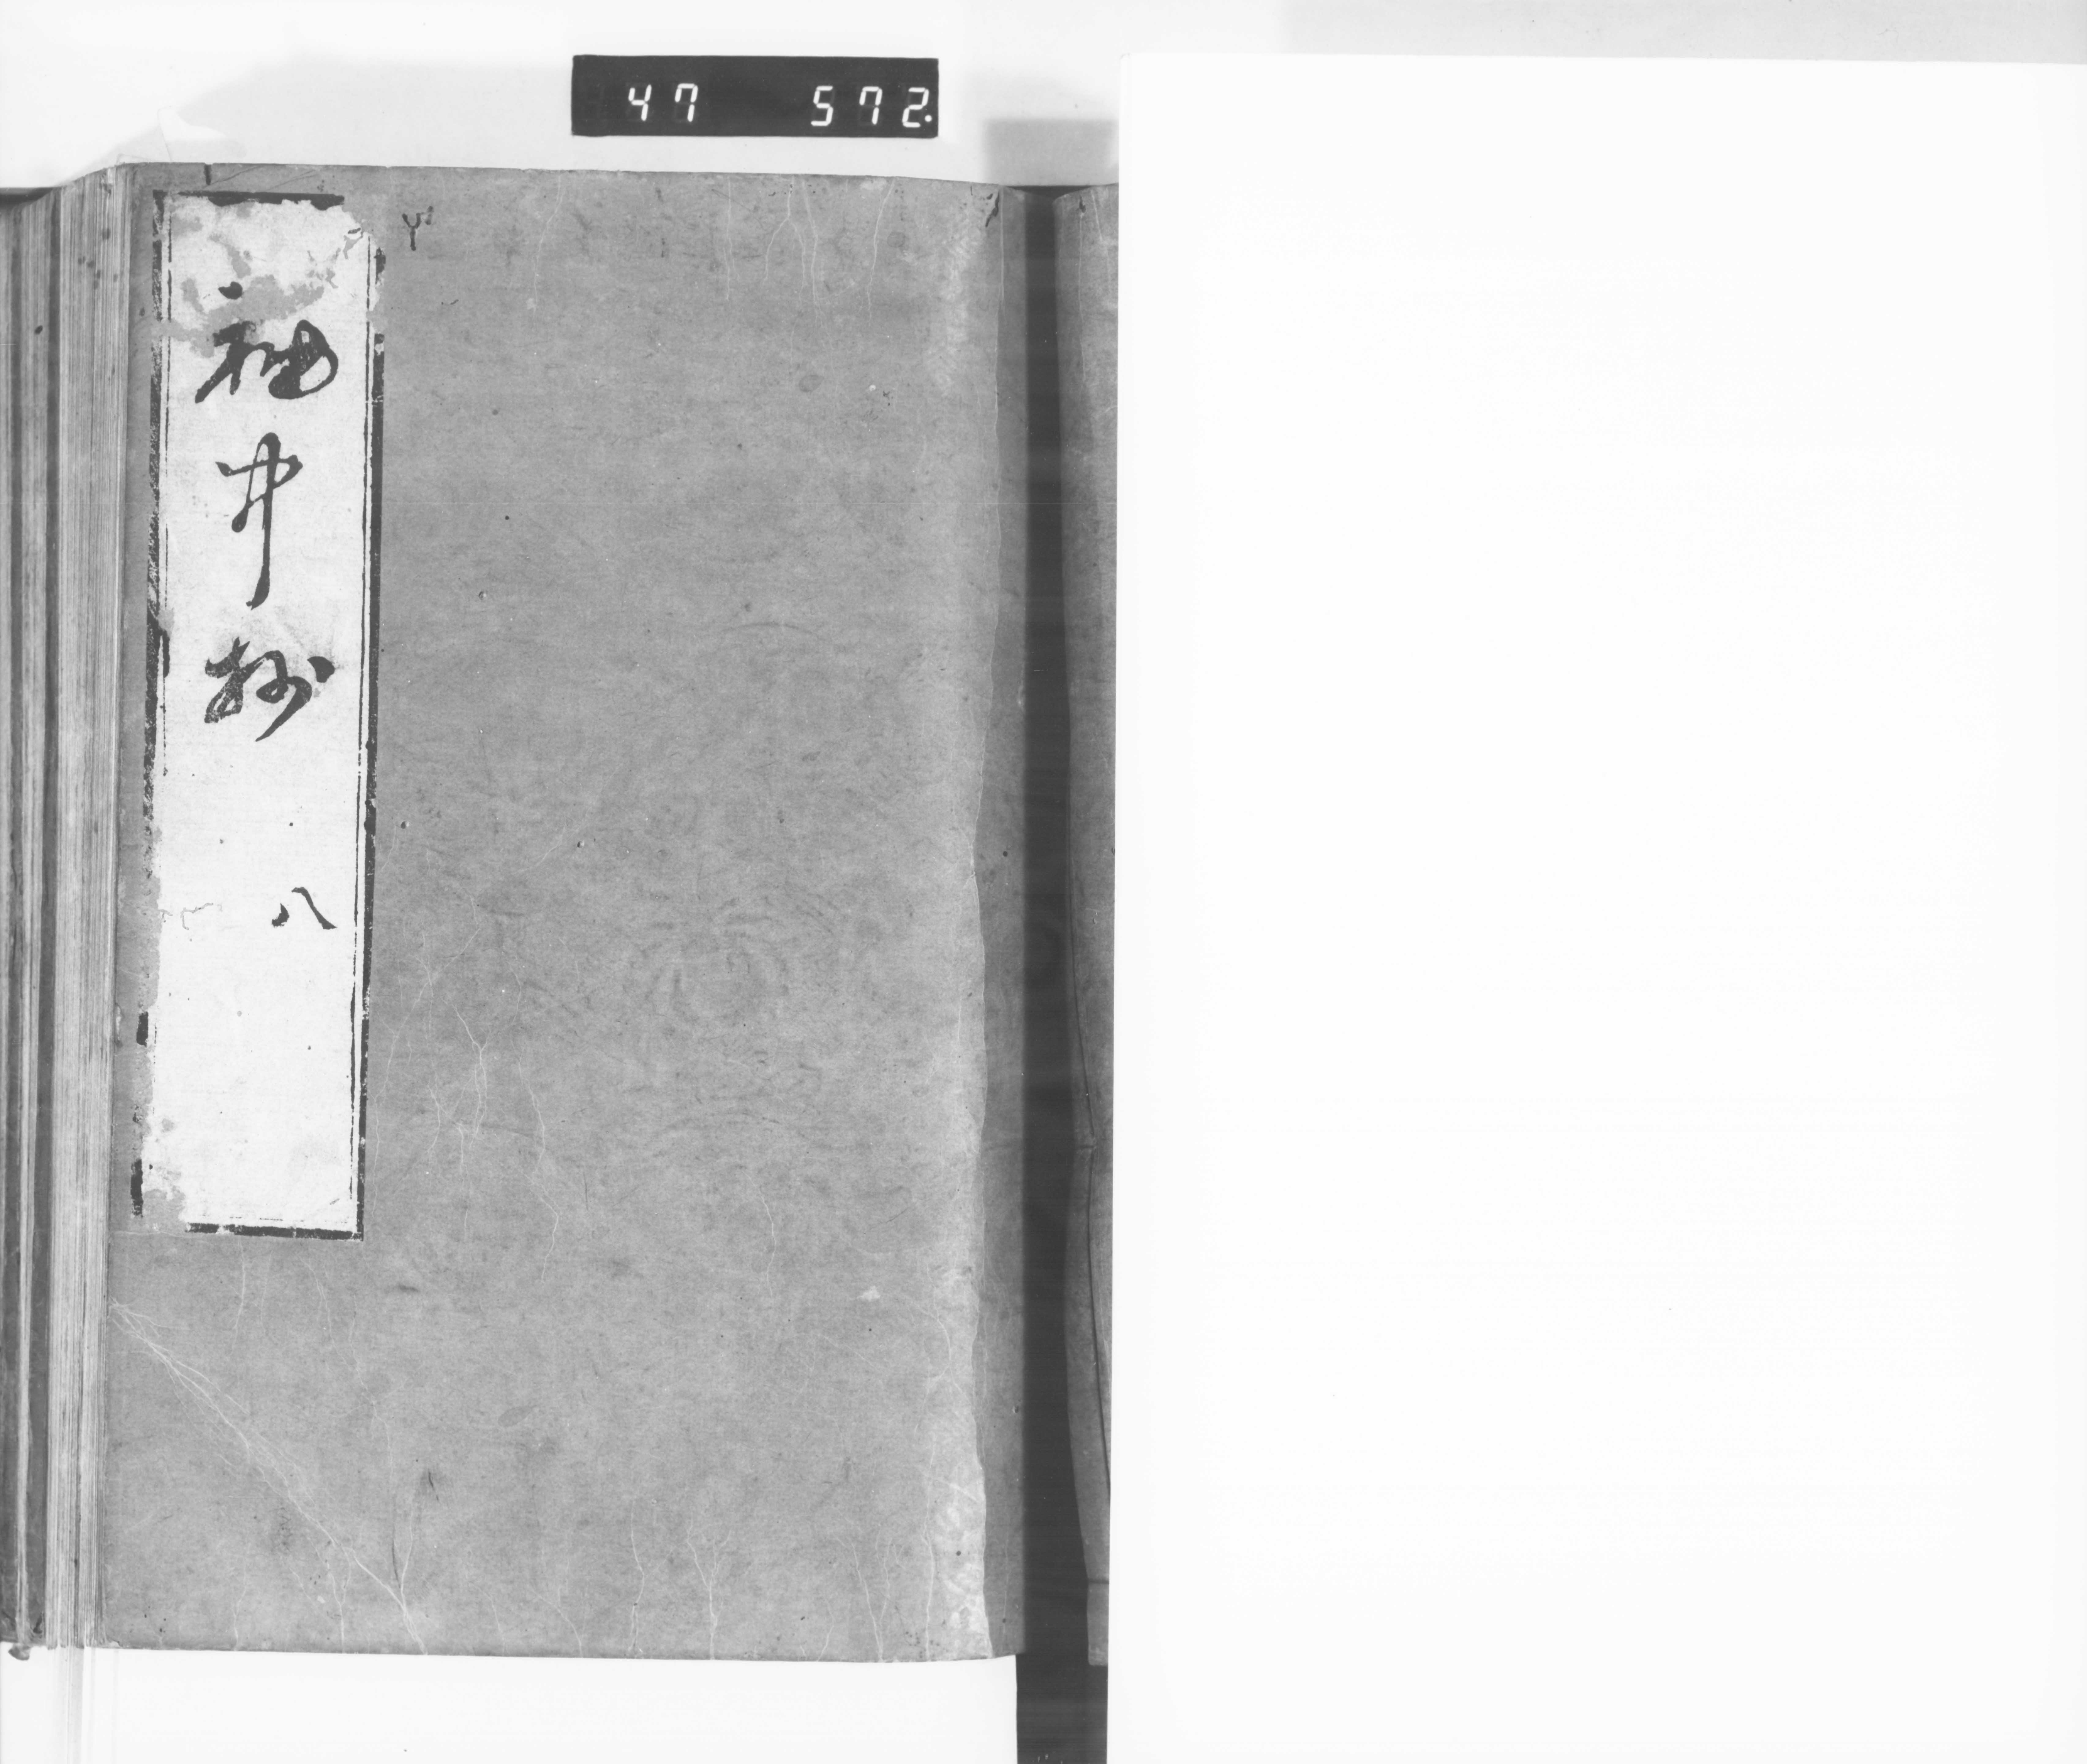 47 572.
袖中抄 八